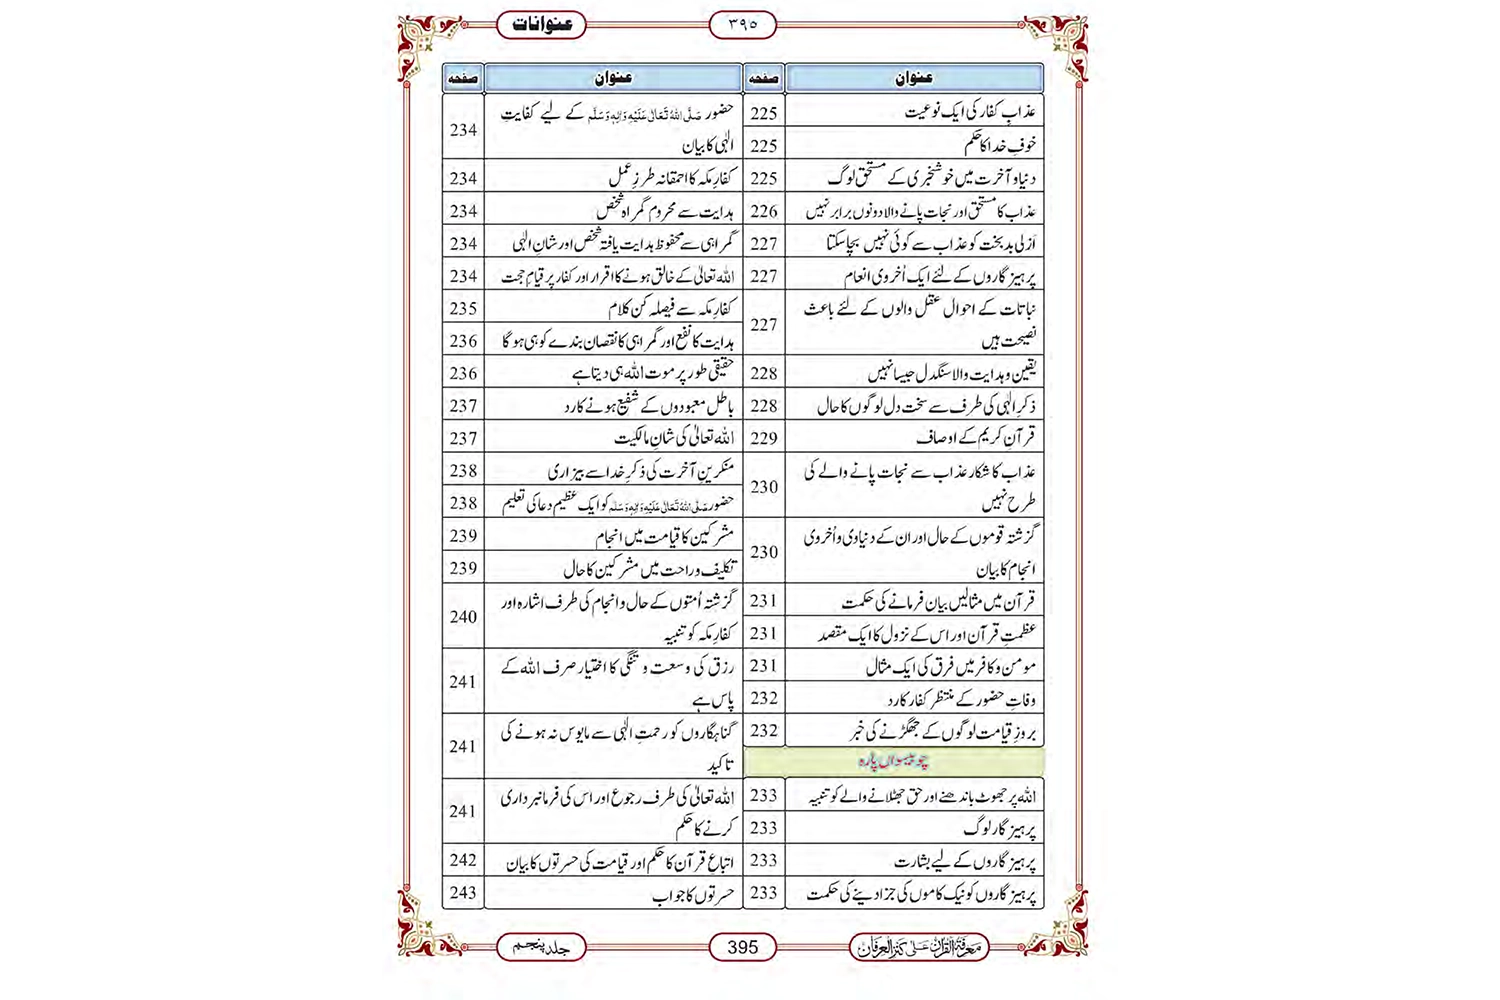 عنوانات
۳۹۵
عنوان صفحہ
عذابِ کفار کی ایک نوعیت 225
خوفِ خدا کا حکم 225
دنیا و آخرت میں خوشخبری کے مستحق لوگ 225
عذاب کا مستحق اور نجات پانے والا دونوں برابر نہیں 226
اَزلی بدبخت کو عذاب سے کوئی نہیں بچا سکتا 227
پرہیزگاروں کے لئے ایک اُخروی انعام 227
نباتات کے احوال عقل والوں کے لئے باعث
نصیحت ہیں 227
یقین و ہدایت والا سنگدل جیسا نہیں 228
ذکرِ الٰہی کی طرف سے سخت دل لوگوں کا حال 228
قرآنِ کریم کے اوصاف 229
عذاب کا شکار عذاب سے نجات پانے والے کی
طرح نہیں 230
گزشتہ قوموں کے حال اور ان کے دنیاوی و اُخروی
انجام کا بیان 230
قرآن میں مثالیں بیان فرمانے کی حکمت 231
عظمتِ قرآن اور اس کے نزول کا ایک مقصد 231
مومن و کافر میں فرق کی ایک مثال 231
وفاتِ حضور کے منتظر کفار کا رد 232
بروزِ قیامت لوگوں کے جھگڑنے کی خبر 232
چوبیسواں پارہ
اللہ پر جھوٹ باندھنے اور حق جھٹلانے والے کو تنبیہ 233
پرہیزگار لوگ 233
پرہیزگاروں کے لیے بشارت 233
پرہیزگاروں کو نیک کاموں کی جزا دینے کی حکمت 233
عنوان صفحہ
حضور صَلَّی اللہُ تَعَالٰی عَلَیْہِ وَاٰلِہٖ وَسَلَّم کے لیے کفایتِ
الٰہی کا بیان 234
کفارِ مکہ کا احمقانہ طرزِ عمل 234
ہدایت سے محروم گمراہ شخص 234
گمراہی سے محفوظ ہدایت یافتہ شخص اور شانِ الٰہی 234
اللہ تعالیٰ کے خالق ہونے کا اقرار اور کفار پر قیامِ حجت 234
کفارِ مکہ سے فیصلہ کن کلام 235
ہدایت کا نفع اور گمراہی کا نقصان بندے کو ہی ہو گا 236
حقیقی طور پر موت اللہ ہی دیتا ہے 236
باطل معبودوں کے شفیع ہونے کا رد 237
اللہ تعالیٰ کی شانِ مالکیت 237
منکرینِ آخرت کی ذکرِ خدا سے بیزاری 238
حضور صَلَّی اللہُ تَعَالٰی عَلَیْہِ وَاٰلِہٖ وَسَلَّم کو ایک عظیم دعا کی تعلیم 238
مشرکین کا قیامت میں انجام 239
تکلیف و راحت میں مشرکین کا حال 239
گزشتہ اُمتوں کے حال و انجام کی طرف اشارہ اور
کفارِ مکہ کو تنبیہ 240
رزق کی وسعت و تنگی کا اختیار صرف اللہ کے
پاس ہے 241
گناہگاروں کو رحمتِ الٰہی سے مایوس نہ ہونے کی
تاکید 241
اللہ تعالیٰ کی طرف رجوع اور اس کی فرمانبرداری
کرنے کا حکم 241
اتباعِ قرآن کا حکم اور قیامت کی حسرتوں کا بیان 242
حسرتوں کا جواب 243
معرفۃ القرآن علیٰ کنز العرفان
395
جلد پنجم